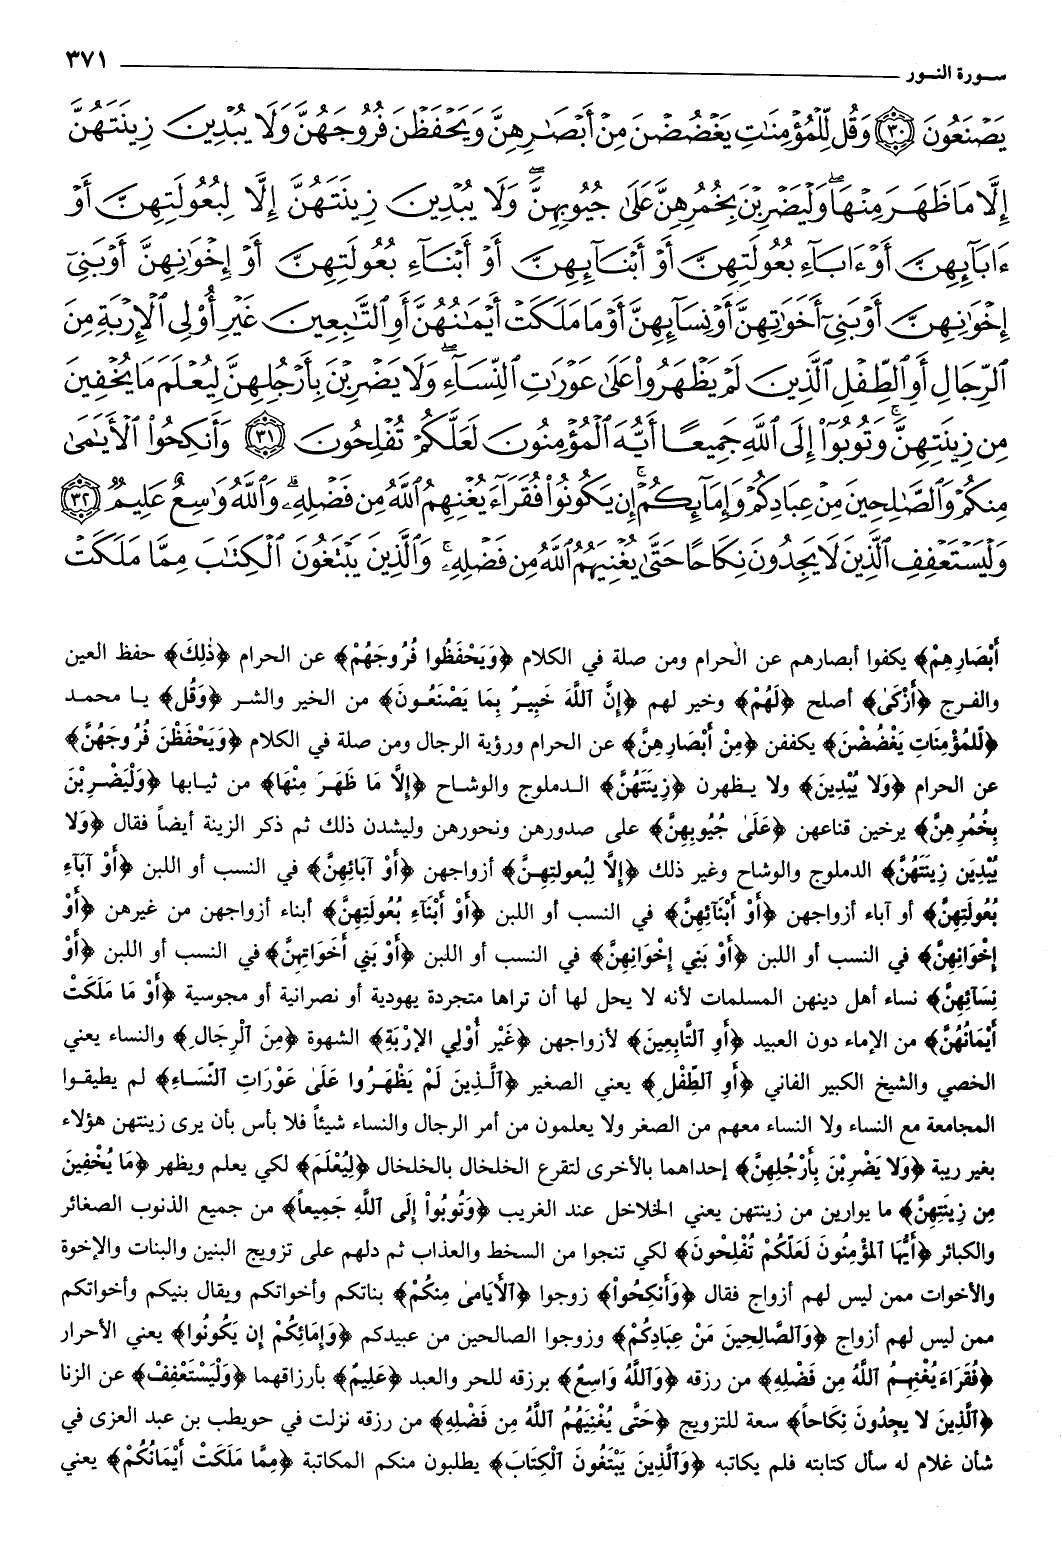 سورة النور ٣٧١
يَصْنَعُونَ ٣٠ وَقُل لِّلْمُؤْمِنَٰتِ يَغْضُضْنَ مِنْ أَبْصَٰرِهِنَّ وَيَحْفَظْنَ فُرُوجَهُنَّ وَلَا يُبْدِينَ زِينَتَهُنَّ
إِلَّا مَا ظَهَرَ مِنْهَا ۖ وَلْيَضْرِبْنَ بِخُمُرِهِنَّ عَلَىٰ جُيُوبِهِنَّ ۖ وَلَا يُبْدِينَ زِينَتَهُنَّ إِلَّا لِبُعُولَتِهِنَّ أَوْ
ءَابَآئِهِنَّ أَوْ ءَابَآءِ بُعُولَتِهِنَّ أَوْ أَبْنَآئِهِنَّ أَوْ أَبْنَآءِ بُعُولَتِهِنَّ أَوْ إِخْوَٰنِهِنَّ أَوْ بَنِىٓ
إِخْوَٰنِهِنَّ أَوْ بَنِىٓ أَخَوَٰتِهِنَّ أَوْ نِسَآئِهِنَّ أَوْ مَا مَلَكَتْ أَيْمَٰنُهُنَّ أَوِ ٱلتَّٰبِعِينَ غَيْرِ أُو۟لِى ٱلْإِرْبَةِ مِنَ
ٱلرِّجَالِ أَوِ ٱلطِّفْلِ ٱلَّذِينَ لَمْ يَظْهَرُوا۟ عَلَىٰ عَوْرَٰتِ ٱلنِّسَآءِ ۖ وَلَا يَضْرِبْنَ بِأَرْجُلِهِنَّ لِيُعْلَمَ مَا يُخْفِينَ
مِن زِينَتِهِنَّ ۚ وَتُوبُوٓا۟ إِلَى ٱللَّهِ جَمِيعًا أَيُّهَ ٱلْمُؤْمِنُونَ لَعَلَّكُمْ تُفْلِحُونَ ٣١ وَأَنكِحُوا۟ ٱلْأَيَٰمَىٰ
مِنكُمْ وَٱلصَّٰلِحِينَ مِنْ عِبَادِكُمْ وَإِمَآئِكُمْ ۚ إِن يَكُونُوا۟ فُقَرَآءَ يُغْنِهِمُ ٱللَّهُ مِن فَضْلِهِۦ ۗ وَٱللَّهُ وَٰسِعٌ عَلِيمٌ ٣٢
وَلْيَسْتَعْفِفِ ٱلَّذِينَ لَا يَجِدُونَ نِكَاحًا حَتَّىٰ يُغْنِيَهُمُ ٱللَّهُ مِن فَضْلِهِۦ ۗ وَٱلَّذِينَ يَبْتَغُونَ ٱلْكِتَٰبَ مِمَّا مَلَكَتْ
أَبْصَارِهِمْ﴾ يكفوا أبصارهم عن الحرام ومن صلة في الكلام ﴿وَيَحْفَظُوا فُرُوجَهُمْ﴾ عن الحرام ﴿ذٰلِكَ﴾ حفظ العين
والفرج ﴿أَزْكَىٰ﴾ أصلح ﴿لَهُمْ﴾ وخير لهم ﴿إِنَّ ٱللَّهَ خَبِيرٌ بِمَا يَصْنَعُونَ﴾ من الخير والشر ﴿وَقُل﴾ يا محمد
﴿لِّلْمُؤْمِنَاتِ يَغْضُضْنَ﴾ يكففن ﴿مِنْ أَبْصَارِهِنَّ﴾ عن الحرام ورؤية الرجال ومن صلة في الكلام ﴿وَيَحْفَظْنَ فُرُوجَهُنَّ﴾
عن الحرام ﴿وَلَا يُبْدِينَ﴾ ولا يظهرن ﴿زِينَتَهُنَّ﴾ الدملوج والوشاح ﴿إِلَّا مَا ظَهَرَ مِنْهَا﴾ من ثيابها ﴿وَلْيَضْرِبْنَ
بِخُمُرِهِنَّ﴾ يرخين قناعهن ﴿عَلَىٰ جُيُوبِهِنَّ﴾ على صدورهن ونحورهن وليشدن ذلك ثم ذكر الزينة أيضاً فقال ﴿وَلَا
يُبْدِينَ زِينَتَهُنَّ﴾ الدملوج والوشاح وغير ذلك ﴿إِلَّا لِبُعولتِهِنَّ﴾ أزواجهن ﴿أَوْ آبَائِهِنَّ﴾ في النسب أو اللبن ﴿أَوْ آبَآءِ
بُعُولَتِهِنَّ﴾ أو آباء أزواجهن ﴿أَوْ أَبْنَآئِهِنَّ﴾ في النسب أو اللبن ﴿أَوْ أَبْنَآءِ بُعُولَتِهِنَّ﴾ أبناء أزواجهن من غيرهن ﴿أَوْ
إِخْوَانِهِنَّ﴾ في النسب أو اللبن ﴿أَوْ بَنِي إِخْوَانِهِنَّ﴾ في النسب أو اللبن ﴿أَوْ بَنِي أَخَوَاتِهِنَّ﴾ في النسب أو اللبن ﴿أَوْ
نِسَآئِهِنَّ﴾ نساء أهل دينهن المسلمات لأنه لا يحل لها أن تراها متجردة يهودية أو نصرانية أو مجوسية ﴿أَوْ مَا مَلَكَتْ
أَيْمَانُهُنَّ﴾ من الإماء دون العبيد ﴿أَوِ ٱلتَّابِعِينَ﴾ لأزواجهن ﴿غَيْرِ أُوْلِي الإِرْبَةِ﴾ الشهوة ﴿مِنَ ٱلْرِجَالِ﴾ والنساء يعني
الخصي والشيخ الكبير الفاني ﴿أَوِ ٱلطِّفْلِ﴾ يعني الصغير ﴿ٱلَّذِينَ لَمْ يَظْهَرُوا عَلَىٰ عَوْرَاتِ ٱلنِّسَاءِ﴾ لم يطيقوا
المجامعة مع النساء ولا النساء معهم من الصغر ولا يعلمون من أمر الرجال والنساء شيئاً فلا بأس بأن يرى زينتهن هؤلاء
بغير ريبة ﴿وَلَا يَضْرِبْنَ بِأَرْجُلِهِنَّ﴾ إحداهما بالأخرى لتقرع الخلخال بالخلخال ﴿لِيُعْلَمَ﴾ لكي يعلم ويظهر ﴿مَا يُخْفِينَ
مِن زِينَتِهِنَّ﴾ ما يوارين من زينتهن يعني الخلاخل عند الغريب ﴿وَتُوبُوا۟ إِلَى ٱللَّهِ جَمِيعاً﴾ من جميع الذنوب الصغائر
والكبائر ﴿أَيُّهَا ٱلمؤْمِنُونَ لَعَلَّكُمْ تُفْلِحُونَ﴾ لكي تنجوا من السخط والعذاب ثم دلهم على تزويج البنين والبنات والإخوة
والأخوات ممن ليس لهم أزواج فقال ﴿وَأَنكِحُوا۟﴾ زوجوا ﴿ٱلْأَيَامىٰ مِنكُمْ﴾ بناتكم وأخواتكم ويقال بنيكم وأخواتكم
ممن ليس لهم أزواج ﴿وَٱلصَّالِحِينَ مَنْ عِبَادِكُمْ﴾ وزوجوا الصالحين من عبيدكم ﴿وَإِمَائِكُمْ إِن يَكُونُوا﴾ يعني الأحرار
﴿فُقَرَاءَ يُغْنِهِمُ ٱللَّهُ مِن فَضْلِهِ﴾ من رزقه ﴿وَٱللَّهُ وَاسِعٌ﴾ برزقه للحر والعبد ﴿عَلِيمٌ﴾ بأرزاقهما ﴿وَلْيَسْتَعْفِفْ﴾ عن الزنا
﴿ٱلَّذِينَ لَا يجِدُونَ نِكَاحاً﴾ سعة للتزويج ﴿حَتَّى يُغْنِيَهُمُ ٱللَّهُ مِن فَضْلِهِ﴾ من رزقه نزلت في حويطب بن عبد العزى في
شأن غلام له سأل كتابته فلم يكاتبه ﴿وَٱلَّذِينَ يَبْتَغُونَ ٱلْكِتَابَ﴾ يطلبون منكم المكاتبة ﴿مِمَّا مَلَكَتْ أَيْمَانُكُمْ﴾ يعني